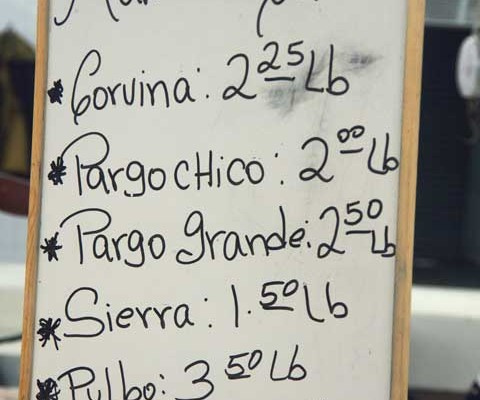 * Corvina: 2 25 Lb
* Pargo CHico: 2 00 Lb
* Pargo grande: 2 50 Lb
* Sierra: 1.50 Lb
* Pulbo: 3 50 Lb